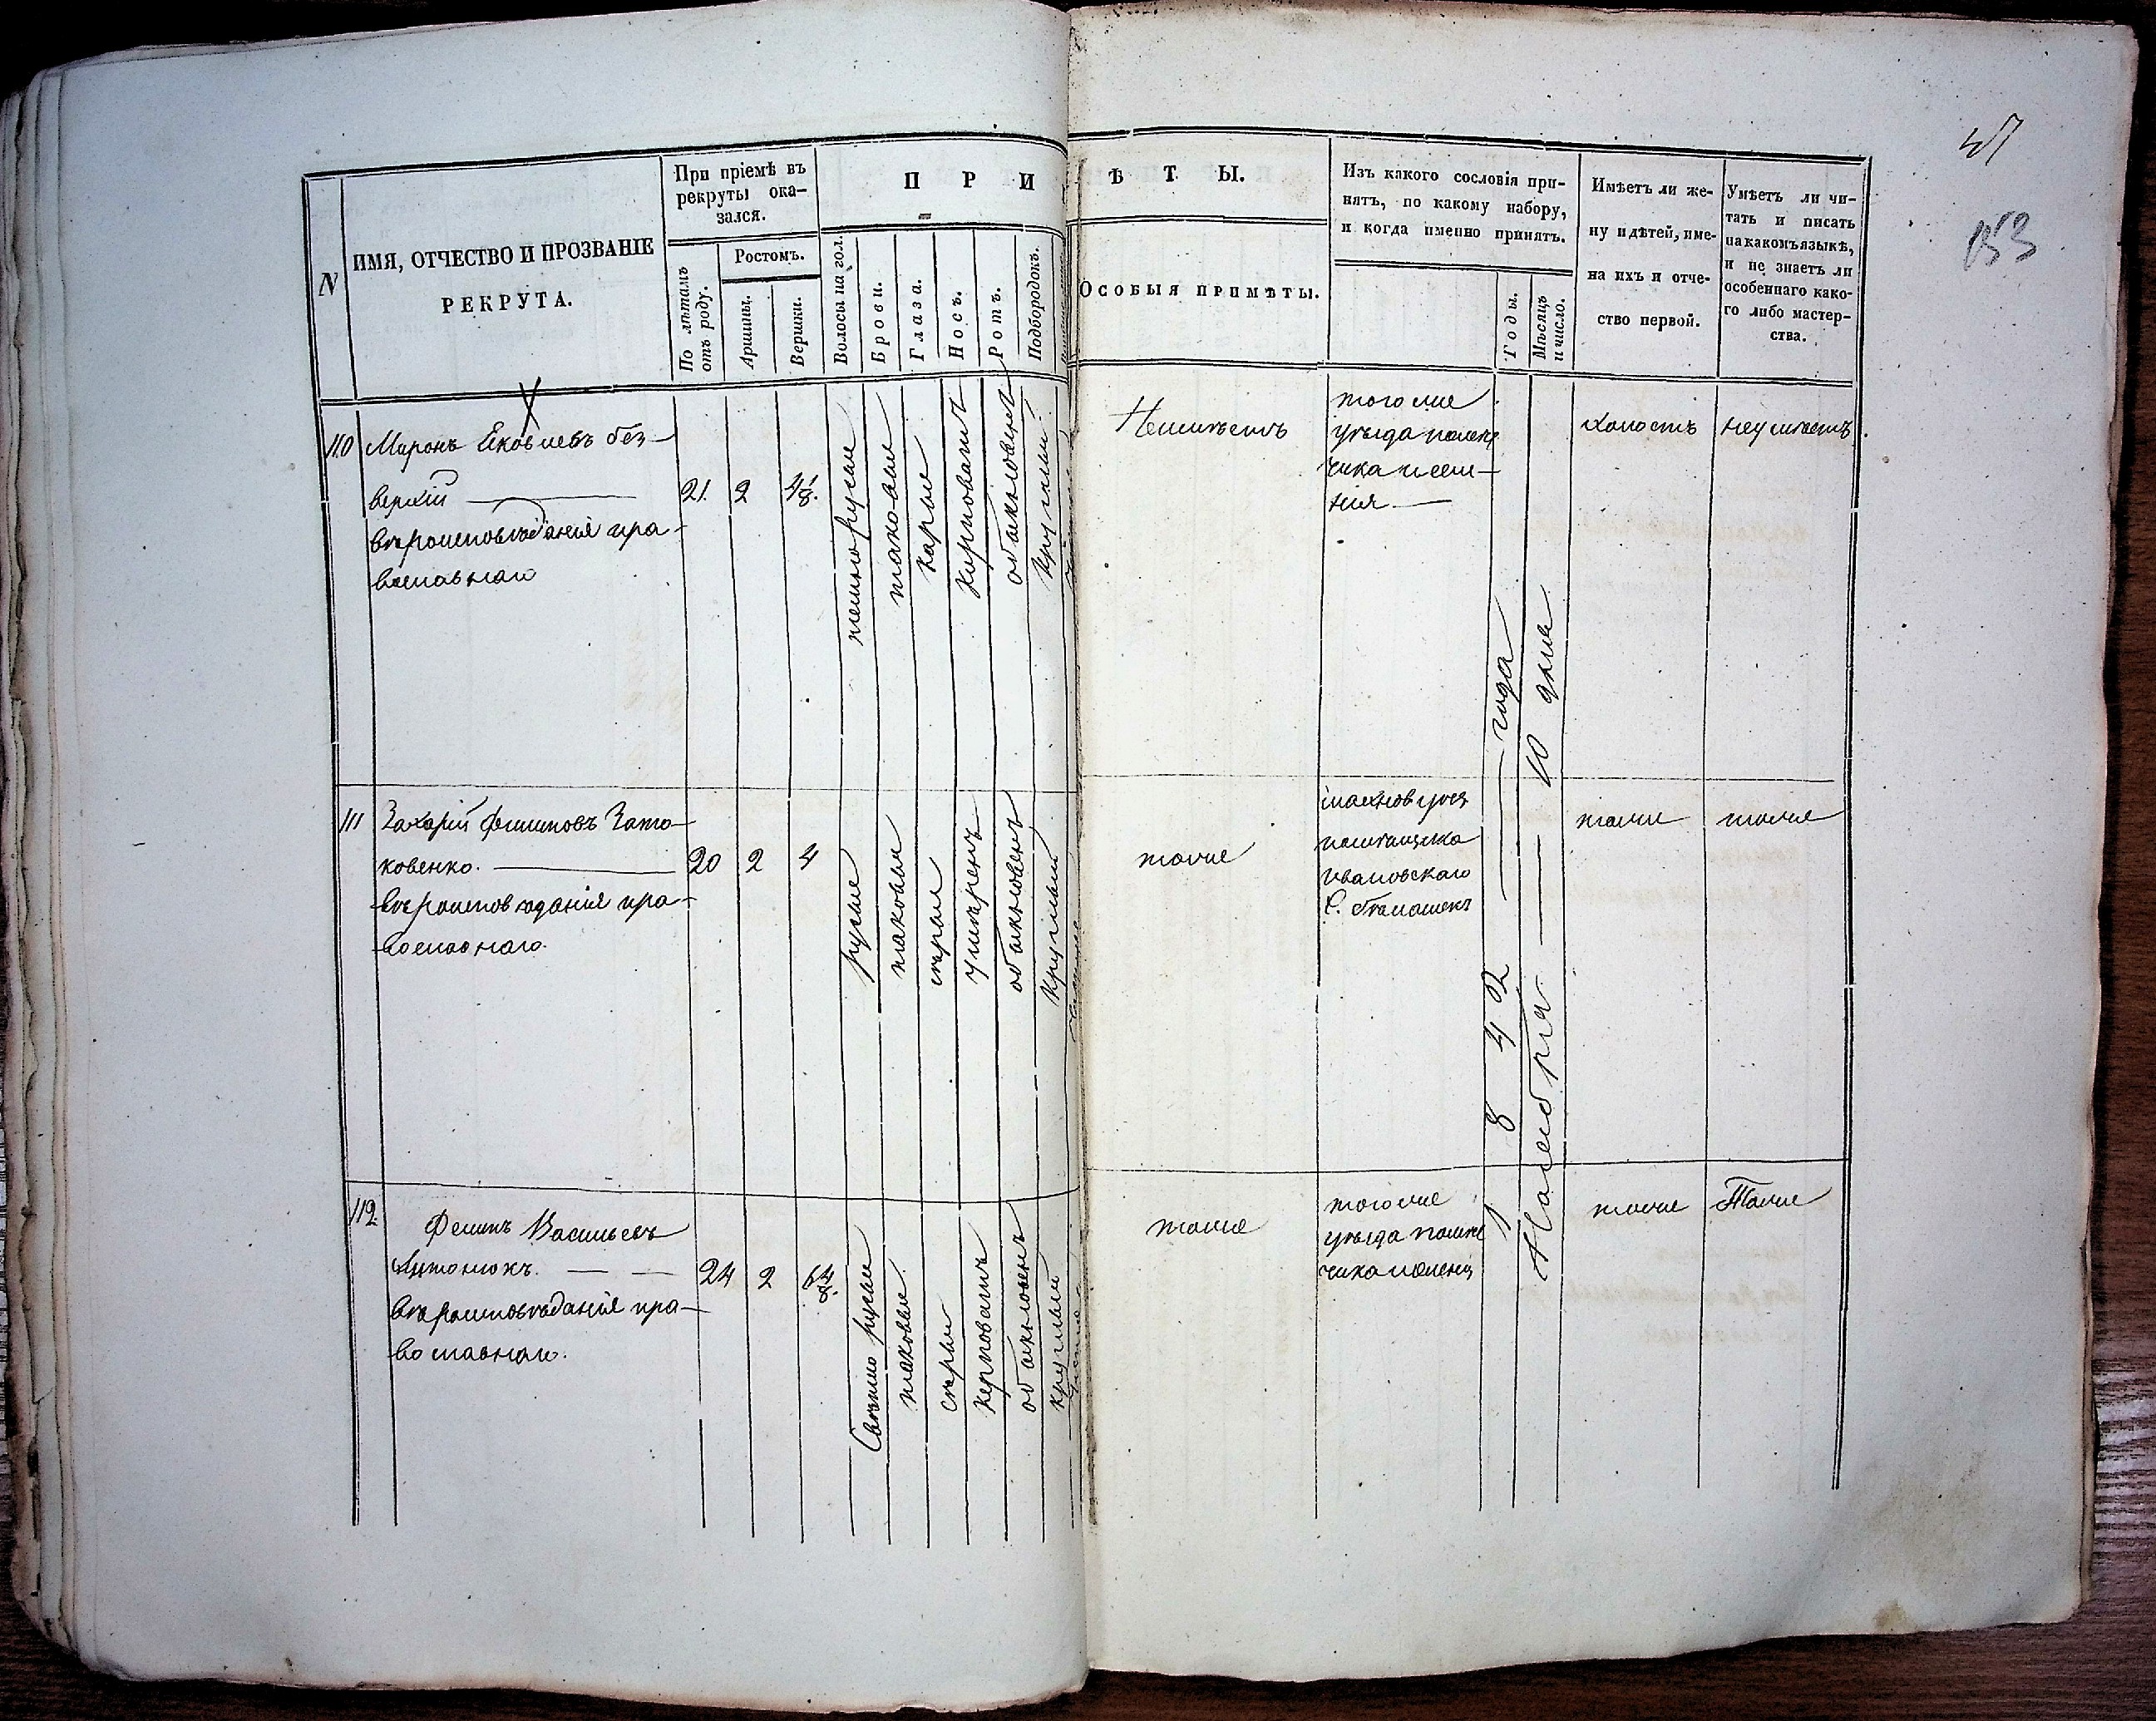 57
153
N
ИМЯ, ОТЧЕСТВО И ПРОЗВАНІЕ
РЕКРУТА.
При пріемѣ въ
рекруты ока-
зался.
По лѣтамъ
отъ роду.
Ростомъ.
Аршины.
Вершки.
П Р И
Волосы на гол.
Брови.
Глаза.
Носъ.
Ротъ.
Подбородокъ.
Ѣ Т Ы.
ОСОБЫЯ ПРИМѢТЫ.
Изъ какого сословія при-
нятъ, по какому набору,
и когда именно принятъ.
Годы.
Мѣсяцъ
и число.
Имѣетъ ли же-
ну и дѣтей, име-
на ихъ и отче-
ство первой.
Умѣетъ ли чи-
тать и писать
на какомъ языкѣ,
и не знаетъ ли
особеннаго како-
го либо мастер-
ства.
110
Миронъ Яковлевъ без-
верхій
вѣроисповѣданія пра-
вославнаго
21.
2
4 1/8.
темнорусые
таковые
карые
Курноватъ
обыкновенъ
Круглый
Неимѣетъ
того же
уѣзда помѣщ
чика
1842 года
Ноября 10 дня
холостъ
неумѣетъ
111
Захарій Филиповъ Зато-
ковенко.
вѣроисповѣданія пра-
вославнаго.
20
2
4
русые
таковые
сѣрые
умѣренъ
обыкновенъ
Круглый
тоже
помѣщика
Ивановскаго
тоже
тоже
112
Филипъ Васильевъ
Антонюкъ.
вѣроисповѣданія пра-
вославнаго.
24
2
6 4/8.
Свѣтло русые
таковые
сѣрые
Керповатъ
обыкновенъ
круглый
тоже
того же
уѣзда помѣ
чика
тоже
Тоже